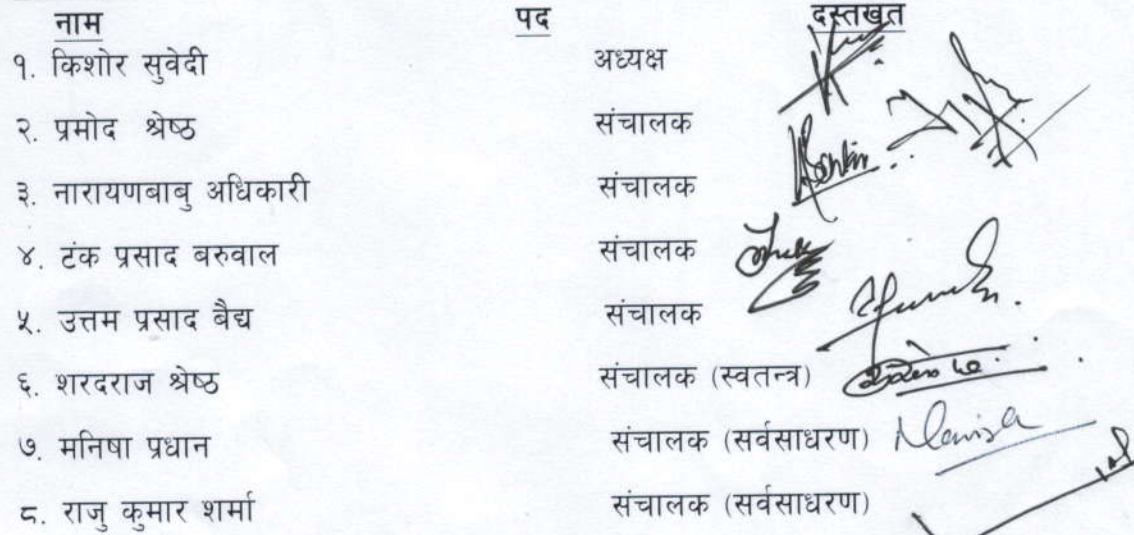 नाम पद दस्तखत
१. किशोर सुवेदी अध्यक्ष
२. प्रमोद श्रेष्ठ संचालक
३. नारायणबाबु अधिकारी संचालक
४. टंक प्रसाद बरुवाल संचालक
५. उत्तम प्रसाद बैद्य संचालक
६. शरदराज श्रेष्ठ संचालक (स्वतन्त्र)
७. मनिषा प्रधान संचालक (सर्वसाधरण) Manisha
८. राजु कुमार शर्मा संचालक (सर्वसाधरण)